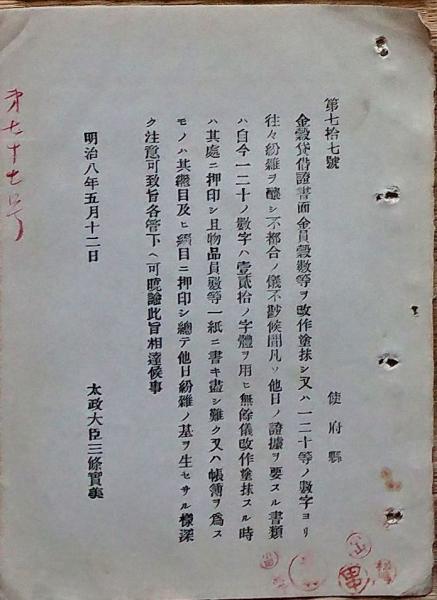 第七拾七號
使府縣
金穀貸借證書面金員穀數等ヲ改作塗抹シ又ハ一二十等ノ數字ヨリ
往々紛雜ヲ釀シ不都合ノ儀不尠候間凡ソ他日ノ證據ヲ要スル書類
ハ自今一二十ノ數字ハ壹貳拾ノ字體ヲ用ヒ無餘儀改作塗抹スル時
ハ其處ニ押印シ且物品員數等一紙ニ書キ盡シ難ク又ハ帳簿ヲ爲ス
モノハ其繼目及ヒ綴目ニ押印シ總テ他日紛雜ノ基ヲ生セサル樣深
ク注意可致旨各管下ヘ可曉諭此旨相達候事
明治八年五月十二日
太政大臣三條實美
第七十七号